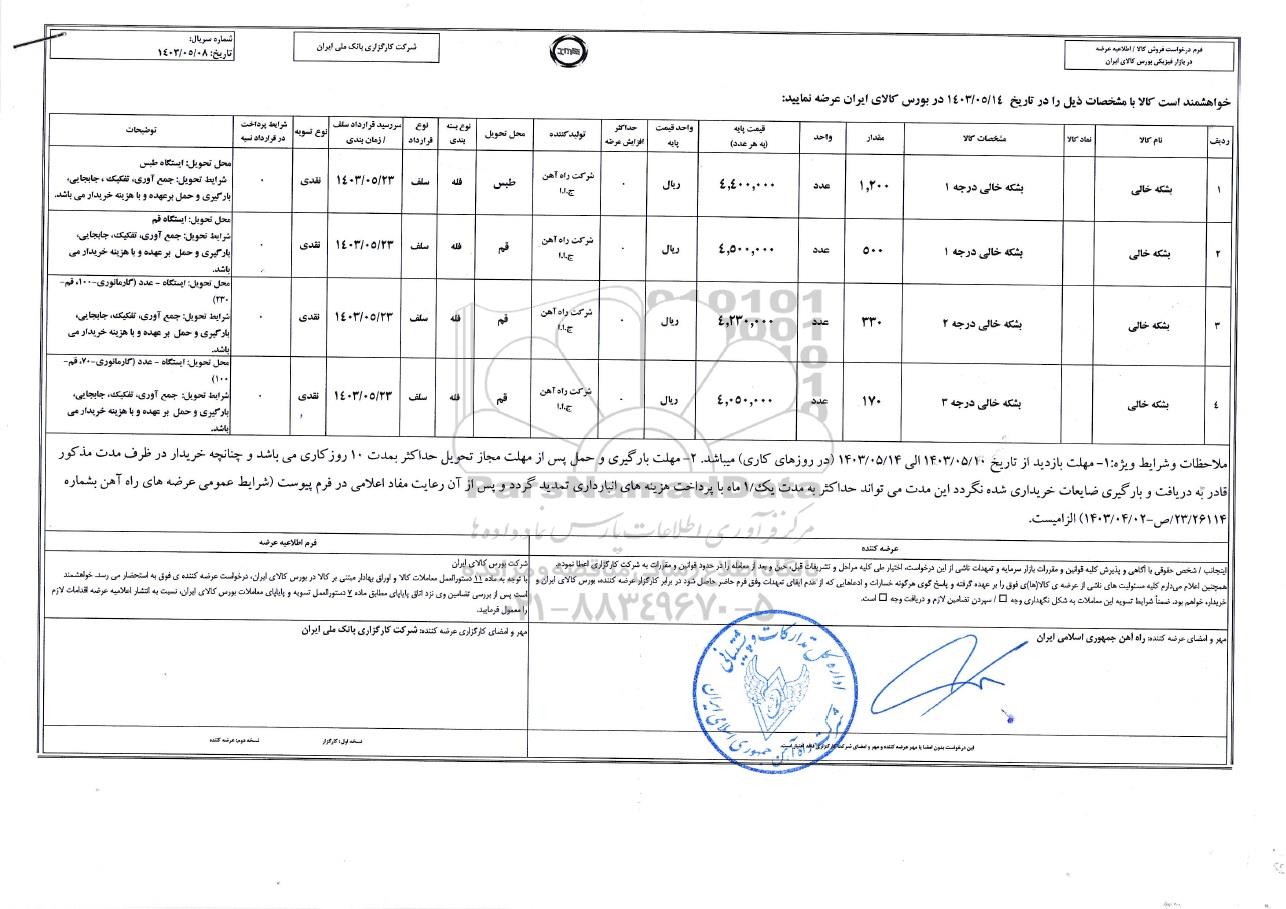 فرم درخواست فروش کالا / اطلاعیه عرضه
در بازار فیزیکی بورس کالای ایران
شرکت کارگزاری بانک ملی ایران
شماره سریال:
تاریخ: ۱٤۰۳/۰٥/۰۸
خواهشمند است کالا با مشخصات ذیل را در تاریخ ۱٤۰۳/۰٥/۱٤ در بورس کالای ایران عرضه نمایید:
ردیف | نام کالا | نماد کالا | مشخصات کالا | مقدار | واحد | قیمت پایه (به هر عدد) | واحد قیمت پایه | حداکثر افزایش عرضه | تولیدکننده | محل تحویل | نوع بسته بندی | نوع قرارداد | سررسید قرارداد سلف / زمان بندی | نوع تسویه | شرایط پرداخت در قرارداد نسیه | توضیحات
۱ | بشکه خالی | بشکه خالی درجه ۱ | ۱,۲۰۰ | عدد | ٤,٤۰۰,۰۰۰ | ریال | ۰ | شرکت راه آهن ج.ا.ا | طبس | فله | سلف | ۱٤۰۳/۰٥/۲۳ | نقدی | ۰
محل تحویل: ایستگاه طبس
شرایط تحویل: جمع آوری، تفکیک ، جابجایی،
بارگیری و حمل برعهده و با هزینه خریدار می باشد.
۲ | بشکه خالی | بشکه خالی درجه ۱ | ۵۰۰ | عدد | ٤,٥۰۰,۰۰۰ | ریال | ۰ | شرکت راه آهن ج.ا.ا | قم | فله | سلف | ۱٤۰۳/۰٥/۲۳ | نقدی | ۰
محل تحویل: ایستگاه قم
شرایط تحویل: جمع آوری، تفکیک، جابجایی،
بارگیری و حمل بر عهده و با هزینه خریدار می
باشد.
۳ | بشکه خالی | بشکه خالی درجه ۲ | ۳۳۰ | عدد | ٤,۲۳۰,۰۰۰ | ریال | ۰ | شرکت راه آهن ج.ا.ا | قم | فله | سلف | ۱٤۰۳/۰٥/۲۳ | نقدی | ۰
محل تحویل: ایستگاه - عدد (گارمانوری-۱۰۰، قم-
۲۳۰)
شرایط تحویل: جمع آوری، تفکیک، جابجایی،
بارگیری و حمل بر عهده و با هزینه خریدار می
باشد.
٤ | بشکه خالی | بشکه خالی درجه ۳ | ۱۷۰ | عدد | ٤,۰٥۰,۰۰۰ | ریال | ۰ | شرکت راه آهن ج.ا.ا | قم | فله | سلف | ۱٤۰۳/۰٥/۲۳ | نقدی | ۰
محل تحویل: ایستگاه - عدد (گارمانوری-۷۰، قم-
۱۰۰)
شرایط تحویل: جمع آوری، تفکیک، جابجایی،
بارگیری و حمل بر عهده و با هزینه خریدار می
باشد.
ملاحظات و شرایط ویژه:۱- مهلت بازدید از تاریخ ۱۴۰۳/۰۵/۱۰ الی ۱۴۰۳/۰۵/۱۴ (در روزهای کاری) میباشد. ۲- مهلت بارگیری و حمل پس از مهلت مجاز تحویل حداکثر بمدت ۱۰ روزکاری می باشد و چنانچه خریدار در ظرف مدت مذکور
قادر به دریافت و بارگیری ضایعات خریداری شده نگردد این مدت می تواند حداکثر به مدت یک/۱ ماه با پرداخت هزینه های انبارداری تمدید گردد و پس از آن رعایت مفاد اعلامی در فرم پیوست (شرایط عمومی عرضه های راه آهن بشماره
۲۳/۲۶۱۱۴/ص-۱۴۰۳/۰۴/۰۲) الزامیست.
ParsNamadData
مرکز فرآوری اطلاعات پارس نماد داده ها
پایگاه اطلاع رسانی مناقصه و مزایده
۰۲۱-۸۸۳۴۹۶۷۰-۵
عرضه کننده
اینجانب / شخص حقوقی با آگاهی و پذیرش کلیه قوانین و مقررات بازار سرمایه و تعهدات ناشی از این درخواست، اختیار طی کلیه مراحل و تشریفات قبل، حین و بعد از معامله را در حدود قوانین و مقررات به شرکت کارگزاری اعطا نموده،
همچنین اعلام می‌دارم کلیه مسئولیت های ناشی از عرضه ی کالا(ها)ی فوق را بر عهده گرفته و پاسخ گوی هرگونه خسارات و ادعاهایی که از عدم ایفای تعهدات وفق فرم حاضر حاصل شود در برابر کارگزار عرضه کننده، بورس کالای ایران و
خریدار، خواهم بود. ضمناً شرایط تسویه این معاملات به شکل نگهداری وجه □ / سپردن تضامین لازم و دریافت وجه □ است.
مهر و امضای عرضه کننده: راه آهن جمهوری اسلامی ایران
اداره کل تدارکات و پشتیبانی
شرکت راه آهن جمهوری اسلامی ایران
این درخواست بدون امضا یا مهر عرضه کننده و مهر و امضای شرکت کارگزاری فاقد اعتبار است.
فرم اطلاعیه عرضه
شرکت بورس کالای ایران
با توجه به ماده ۱۱ دستورالعمل معاملات کالا و اوراق بهادار مبتنی بر کالا در بورس کالای ایران، درخواست عرضه کننده ی فوق به استحضار می رسد. خواهشمند
است پس از بررسی تضامین وی نزد اتاق پایاپای مطابق ماده ۷ دستورالعمل تسویه و پایاپای معاملات بورس کالای ایران، نسبت به انتشار اعلامیه عرضه اقدامات لازم
را معمول فرمایید.
مهر و امضای کارگزاری عرضه کننده: شرکت کارگزاری بانک ملی ایران
نسخه اول: کارگزار
نسخه دوم: عرضه کننده